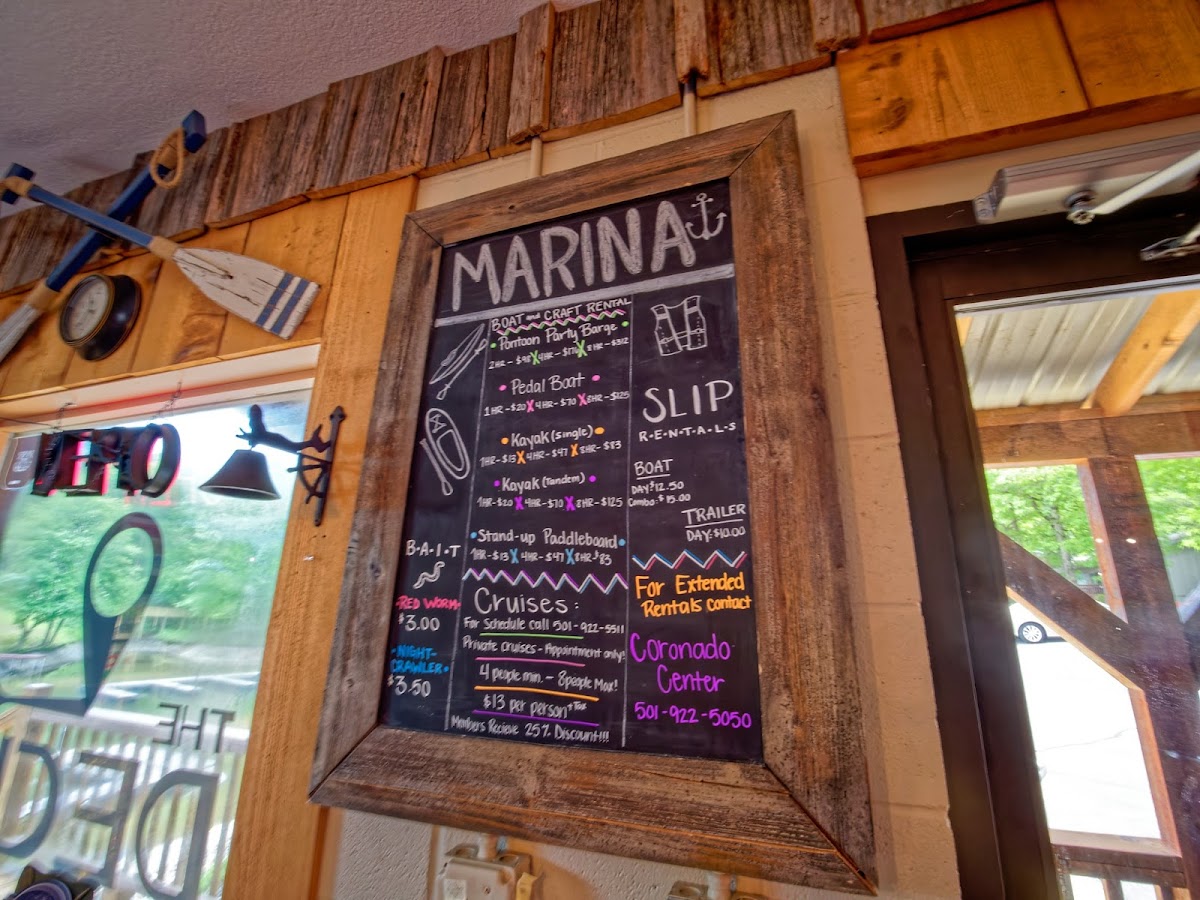 MARINA
BOAT and CRAFT RENTAL
Pontoon Party Barge
2HR - $98 X 4HR - $176 X 8HR - $312
Pedal Boat
1HR - $20 X 4HR - $70 X 8HR - $125
Kayak (single)
1HR - $13 X 4HR - $47 X 8HR - $83
Kayak (Tandem)
1HR - $20 X 4HR - $70 X 8HR - $125
Stand-up Paddleboard
1HR - $13 X 4HR - $47 X 8HR $83
Cruises:
For Schedule call 501-922-5511
Private cruises - Appointment only!
4 people min. - 8people Max!
$13 per person + Tax
Members Recieve 25% Discount!!!
B·A·I·T
RED WORM
$3.00
NIGHT-
CRAWLER
$3.50
SLIP
R·E·N·T·A·L·S
BOAT
DAY: $12.50
Combo: $15.00
TRAILER
DAY: $10.00
For Extended
Rentals contact
Coronado
Center
501-922-5050
OPEN
THE
DECK